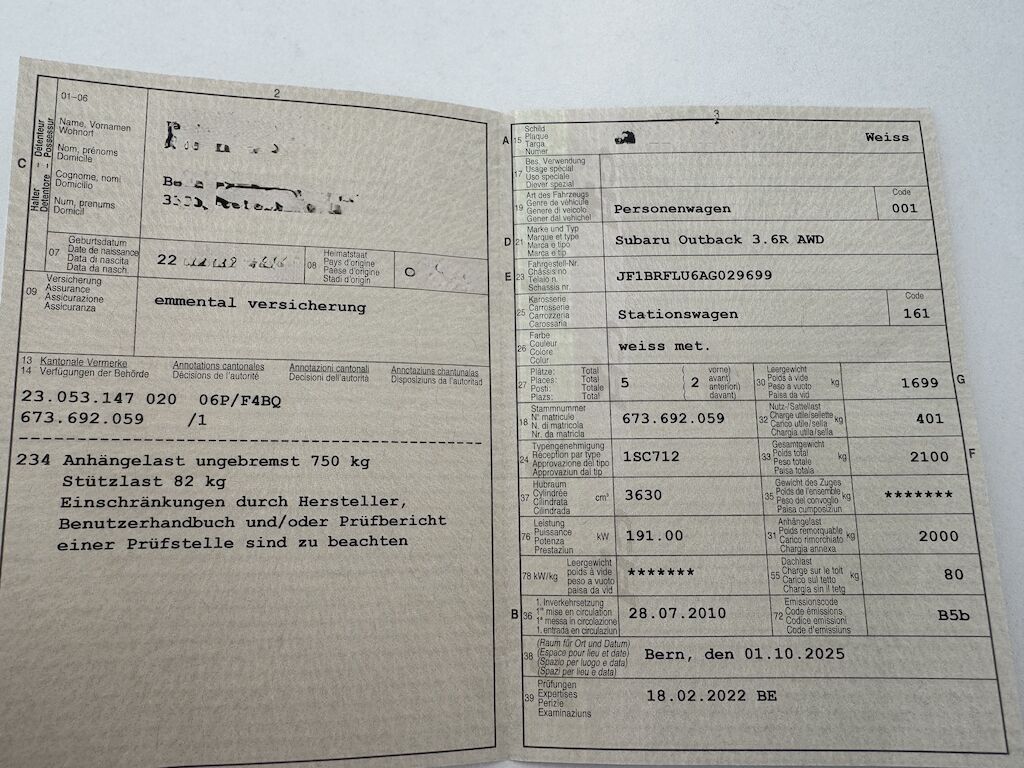 2
01–06
Halter Détenteur
Detentore Possessur
Name, Vornamen
Wohnort
Nom, prénoms
Domicile
Cognome, nomi
Domicilio
Num, prenums
Domicil
C
07
Geburtsdatum
Date de naissance
Data di nascita
Data da nasch.
22
08
Heimatstaat
Pays d'origine
Paese d'origine
Stadi d'origin
O
09
Versicherung
Assurance
Assicurazione
Assicuranza
emmental versicherung
13 Kantonale Vermerke Annotations cantonales Annotazioni cantonali Annotaziuns chantunalas
14 Verfügungen der Behörde Décisions de l'autorité Decisioni dell'autorità Disposiziuns da l'autoritad
23.053.147 020 06P/F4BQ
673.692.059 /1
234 Anhängelast ungebremst 750 kg
Stützlast 82 kg
Einschränkungen durch Hersteller,
Benutzerhandbuch und/oder Prüfbericht
einer Prüfstelle sind zu beachten
3
A 15
Schild
Plaque
Targa
Numer
Weiss
17
Bes. Verwendung
Usage spécial
Uso speciale
Diever spezial
19
Art des Fahrzeugs
Genre de véhicule
Genere di veicolo
Gener dal vehichel
Personenwagen
Code
001
D 21
Marke und Typ
Marque et type
Marca e tipo
Marca e tip
Subaru Outback 3.6R AWD
E 23
Fahrgestell-Nr.
Châssis no
Telaio n.
Schassis nr.
JF1BRFLU6AG029699
25
Karosserie
Carrosserie
Carrozzeria
Carossaria
Stationswagen
Code
161
26
Farbe
Couleur
Colore
Colur
weiss met.
27
Plätze: Total
Places: Total
Posti: Totale
Plazs: Total
5
( 2
vorne)
avant)
anteriori)
davant)
30
Leergewicht
Poids à vide
Peso a vuoto
Paisa da vid
kg
1699
G
18
Stammnummer
N° matricule
N. di matricola
Nr. da matricla
673.692.059
32
Nutz-/Sattellast
Charge utile/sellette
Carico utile/sella
Chargia utila/sella
kg
401
24
Typengenehmigung
Réception par type
Approvazione del tipo
Approvaziun dal tip
1SC712
33
Gesamtgewicht
Poids total
Peso totale
Paisa totala
kg
2100
F
37
Hubraum
Cylindrée
Cilindrata
Cilindrada
cm³
3630
35
Gewicht des Zuges
Poids de l'ensemble
Peso del convoglio
Paisa cumposiziun
kg
*******
76
Leistung
Puissance
Potenza
Prestaziun
kW
191.00
31
Anhängelast
Poids remorquable
Carico rimorchiato
Chargia annexa
kg
2000
78 kW/kg
Leergewicht
poids à vide
peso a vuoto
paisa da vid
*******
55
Dachlast
Charge sur le toit
Carico sul tetto
Chargia sin il tetg
kg
80
B 36
1. Inverkehrsetzung
1re mise en circulation
1a messa in circolazione
1. entrada en circulaziun
28.07.2010
72
Emissionscode
Code émissions
Codice emissioni
Code d'emissiuns
B5b
38
(Raum für Ort und Datum)
(Espace pour lieu et date)
(Spazio per luogo e data)
(Spazi per lieu e data)
Bern, den 01.10.2025
39
Prüfungen
Expertises
Perizie
Examinaziuns
18.02.2022 BE